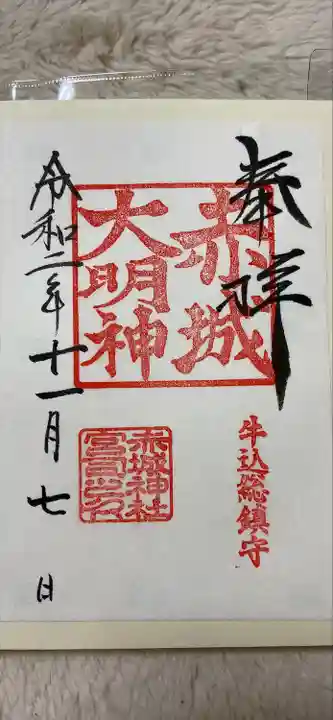 奉拝
赤城
大明神
牛込総鎮守
赤城神社
宮司之印
令和二年十一月七日